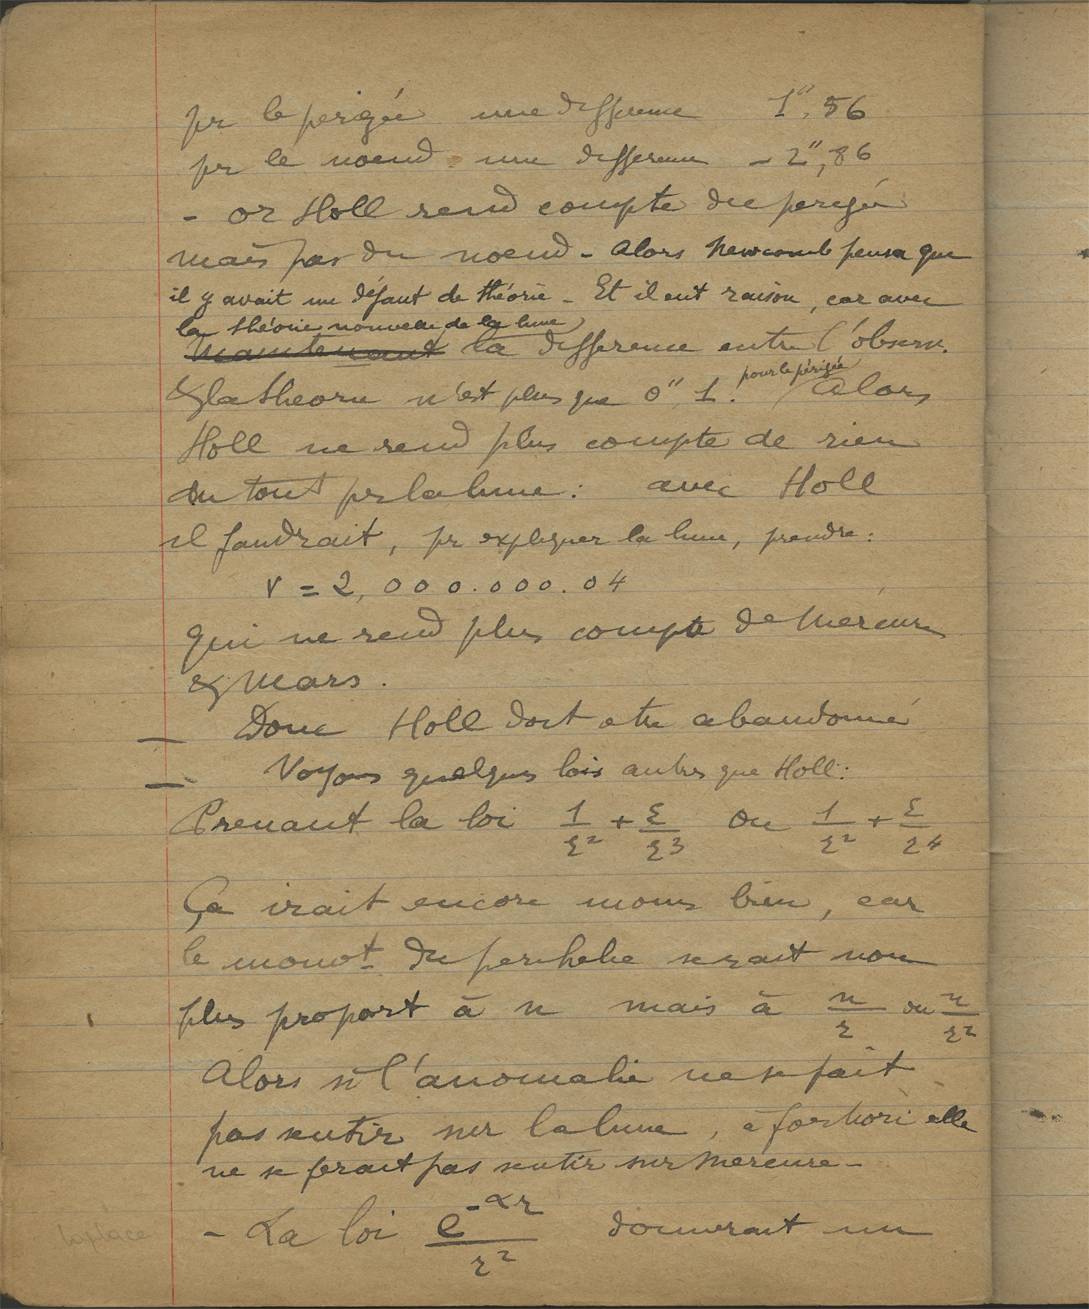 pr le perigée une difference 1",56
pr le noeud une difference - 2",86
- or Holl rend compte du perigée
mais pas du noeud - Alors Newcomb pensa que
il y avait un défaut de théorie - Et il eut raison, car avec
la théorie nouveau de la lune
maintenant la difference entre l'observ.
& la theorie n'est plus que 0" 1. pour le périgée Alors
Holl ne rend plus compte de rien
du tout pr la lune : avec Holl
il faudrait, pr expliquer la lune, prendre :
v = 2,000.000.04
qui ne rend plus compte de Mercure
& Mars.
— Donc Holl doit etre abandonné
— Voyons quelques lois autres que Holl :
Prenant la loi 1/r² + ε/r³ ou 1/r² + ε/r4
Ça irait encore moins bien, car
le mouvt du perihelie serait non
plus proport à n mais à n/r ou n/r²
Alors si l'anomalie ne se fait
pas sentir sur la lune, a fortiori elle
ne se ferait pas sentir sur Mercure -
Laplace - La loi e^-αr/r² donnerait un